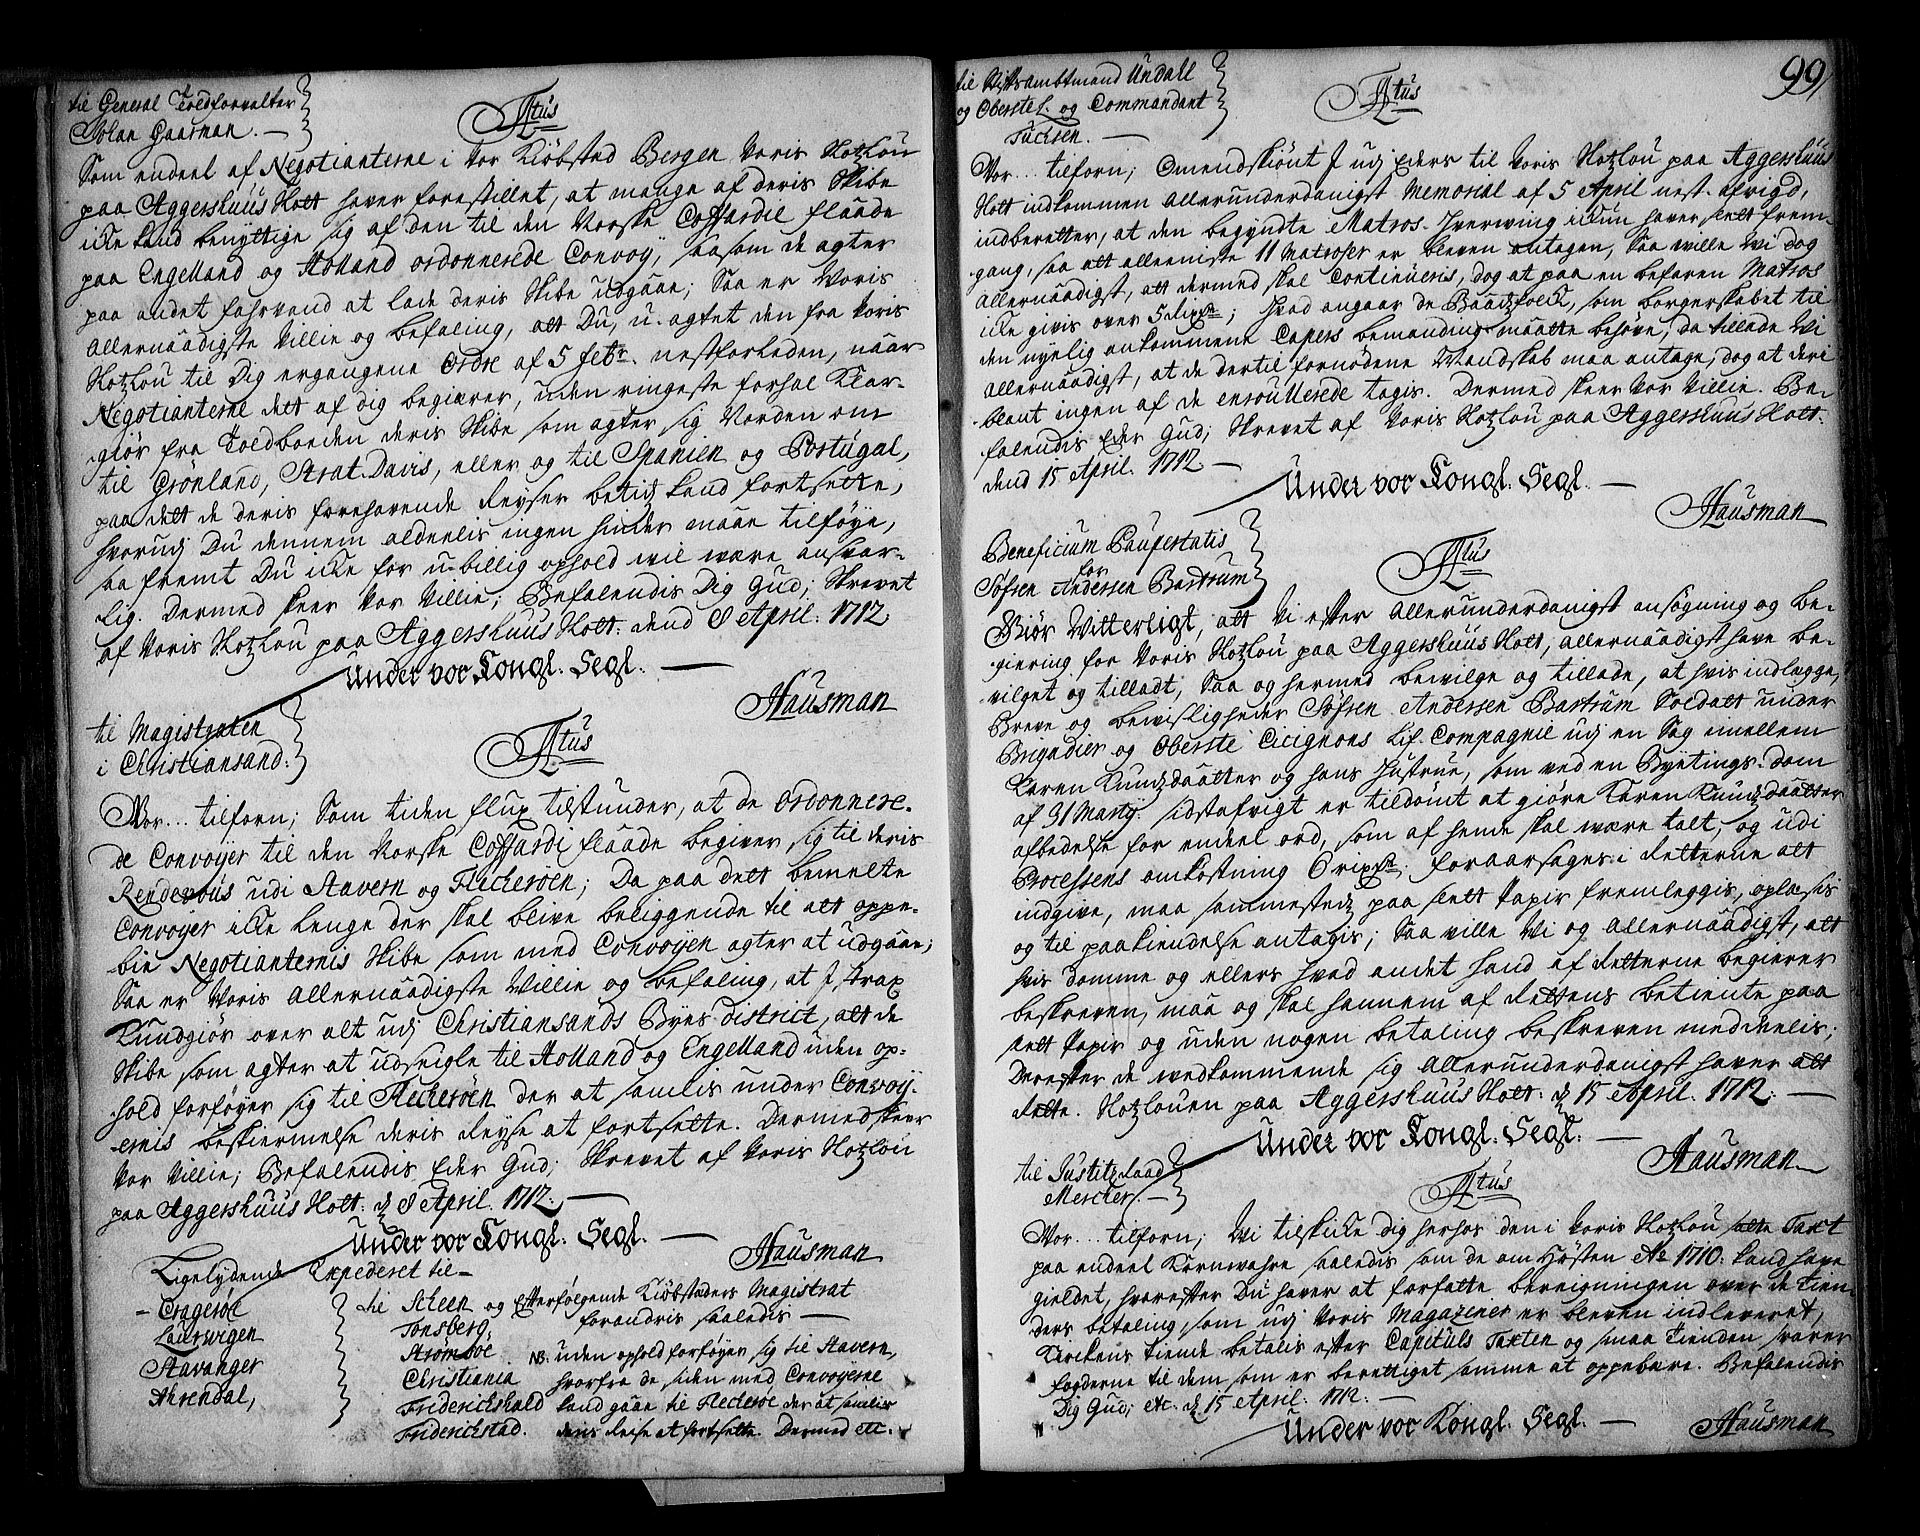 til General Toldforvalter
Johan Gaarman. —
F4tus
Som endeel af Negotianterne i Vor Kiøbsted Bergen Voris Slotzlou
paa Aggershuus Slott haver forestillet, at mange af deris Skibe
icke kand benyttige sig af den til den Norske Coffardie flaade
paa Engelland og Holland ordonnerede Convoy, saasom de agter
paa andet fahrvand at lade deris Skibe udgaae; Saa er Voris
allernaadigste Villie og befaling, att Du, u-agtet den fra Voris
Slotzlou til Dig ergangene Ordre af 5 febr. nestforleden, naar
Negotianterne dett af dig begiærer, uden ringeste forhal Klar-
giør fra Toldboeden deris Skibe som agter sig Norden om
til Grønland, Strat Davis, eller og til Spanien og Portugal,
paa dett de deris forehavende Reyser betids kand fortsette,
hvorudj Du dennem aldeelis ingen hinder maae tilføye,
saa fremt Du icke for u-billig ophold vil være ansvar-
lig. Dermed skeer Vor Villie; Befalendis Dig Gud; Skrevet
af Voris Slotzlou paa Aggershuus Slott. dend 8 April. 1712
Under vor Kongl. Segl. —
Hausman
til Magistraten
i Christiansand.
Vor... tilforn; Som tiden flux tilstunder, at de ordonnere-
de Convoyer til den Norske Coffardi flaade begiver sig til deris
Rendevous udi Stavern og Fleckerøen; Da paa dett bemelte
Convoyer icke lenge der skal blive beliggende til att oppe-
bie Negotianternis Skibe som med Convoyen agter at udgaae;
Saa er Voris allernaadigste Villie og befaling, at I, strax
Kundgiør over alt udj Christiansands Byes district, att de
Skibe som agter at udseigle til Holland og Engelland uden op-
hold forføyer sig til Fleckerøen der at samlis under Convoy-
ernis beskiermelse deris Reyse at fortsette. Dermed skeer
Vor Villie; Befalendis Eder Gud; Skrevet af Voris Slotzlou
paa Aggershuus Slott. d 8 April. 1712. —
Under vor Kongl. Segl. —
Hausman
Ligelydende Expederet til —
— Cragerøe
Laurwigen
Stavanger
Ahrendal,
til Scheen og Efterfølgende Kiøbsteders Magistrat
Tonsberg, forandris saaledis —
Strømsøe. NB: uden ophold forføyer sig til Stavern,
Christiania hvorfra de siden med Convoyerne
Friderichshald kand gaae til Fleckerøe der at samlis
Friderichstad. deris Reise at fortsette. Dermed etc.
99
til Stiftsambtmand Undall
og Oberstel. og Commandant
Tuchsen. —
Vor... tilforn; Omendskiønt I udj Eders til Voris Slotzlou paa Aggershuus
Slott indkommen allerunderdanigst Memorial af 5 April nest-afvigd,
indberetter, at den begyndte Matros-hverwing ickun haver sett frem-
gang, saa att alleeniste 11 Matroser er bleven antagen, Saa wille Wi dog
allernaadigst, att dermed skal Continueris, dog at paa en befaren Matros
icke givis over 5 rixdr; Hvad angaar de Baadzfolck, som borgerskabet til
den nyelig ankommene Capers bemanding maatte behøve, da tillade Wi
allernaadigst, at de dertil fornødene Mandskab maa antage, dog at deri-
blant ingen af de enroullerede tagis. Dermed skeer Vor Villie. Be-
falendis Eder Gud; Skrevet af Voris Slotzlou paa Aggershuus Slott.
dend 15 April. 1712 —
Under vor Kongl. Segl. —
Hausman
Beneficium Paupertatis
for
Søfren Andersen Bastrum
Giør Witterligt, att Vi efter allerunderdanigst ansøgning og be-
giering for Voris Slotzlou paa Aggershuus Slott, allernaadigst have be-
vilget og tilladt, Saa og hermed bevilge og tillade, at hvis indlegge,
Breve og bevisligheder Søfren Andersen Bastrum Soldatt under
Brigadier og Oberste Cicignons Lif-Compagnie udj en Sag imellem
Karen Knudsdaatter og hans Hustrue, som ved en Byetings-dom
af 31 Martij. sidstafvigt er tildømt at giøre Karen Knudsdaatter
afbedelse for endeel ord, som af hende skal være talt, og udi
Processens omkostning 6 rixdr; foraarsages i Retterne att
indgive, maa sammesteds paa slett Papir fremleggis, oplæsis
og til paakiendelse antagis; Saa ville Wi og allernaadigst, att
hvis domme og ellers hvad andet hand af Retterne begierer
beskreven, maa og skal hannem af Rettens betiente paa
slett Papir og uden nogen betaling beskreven meddeelis;
Derefter de vedkommende sig allerunderdanigst haver att
rette. Slotzlouen paa Aggershuus Slott. d 15 April. 1712. —
Under vor Kongl. Segl. —
Hausman
til Justitzraad
Mercker. —
Vor... tilforn; Wi tilskicke dig herhos den i Voris Slotzlou satte Taxt
paa endeel Kornwahre saaledis som de om Høsten Ao 1710. kand have
gieldet, hvorefter Du haver at forfatte bereigningen over de Tien-
ders betaling, som udj Voris Magaziner er bleven indleveret,
Kirckens Tiende betalis efter Capituls Taxten og maa Tienden svares
fogderne til dem som er berettiget samme at oppebære. Befalendis
Dig Gud; etc. d 15 April. 1712. —
Under vor Kongl. Segl. —
Hausman